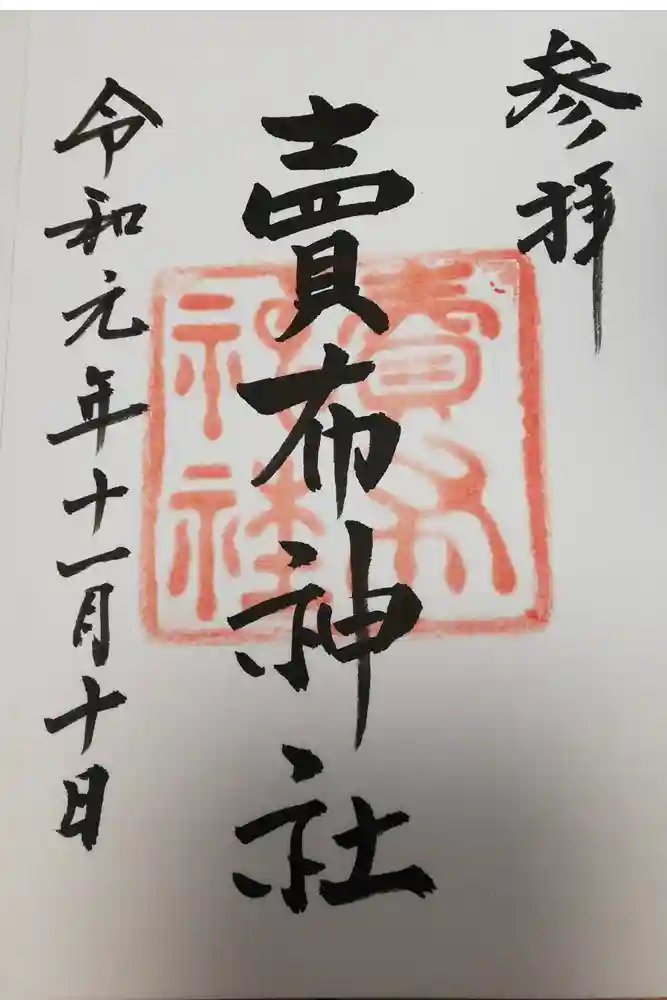 参拝
賣布神社
賣布神社
令和元年十一月十日